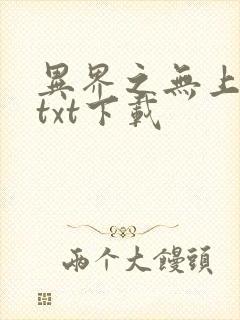 異界之無上
txt下載
兩个大饅頭